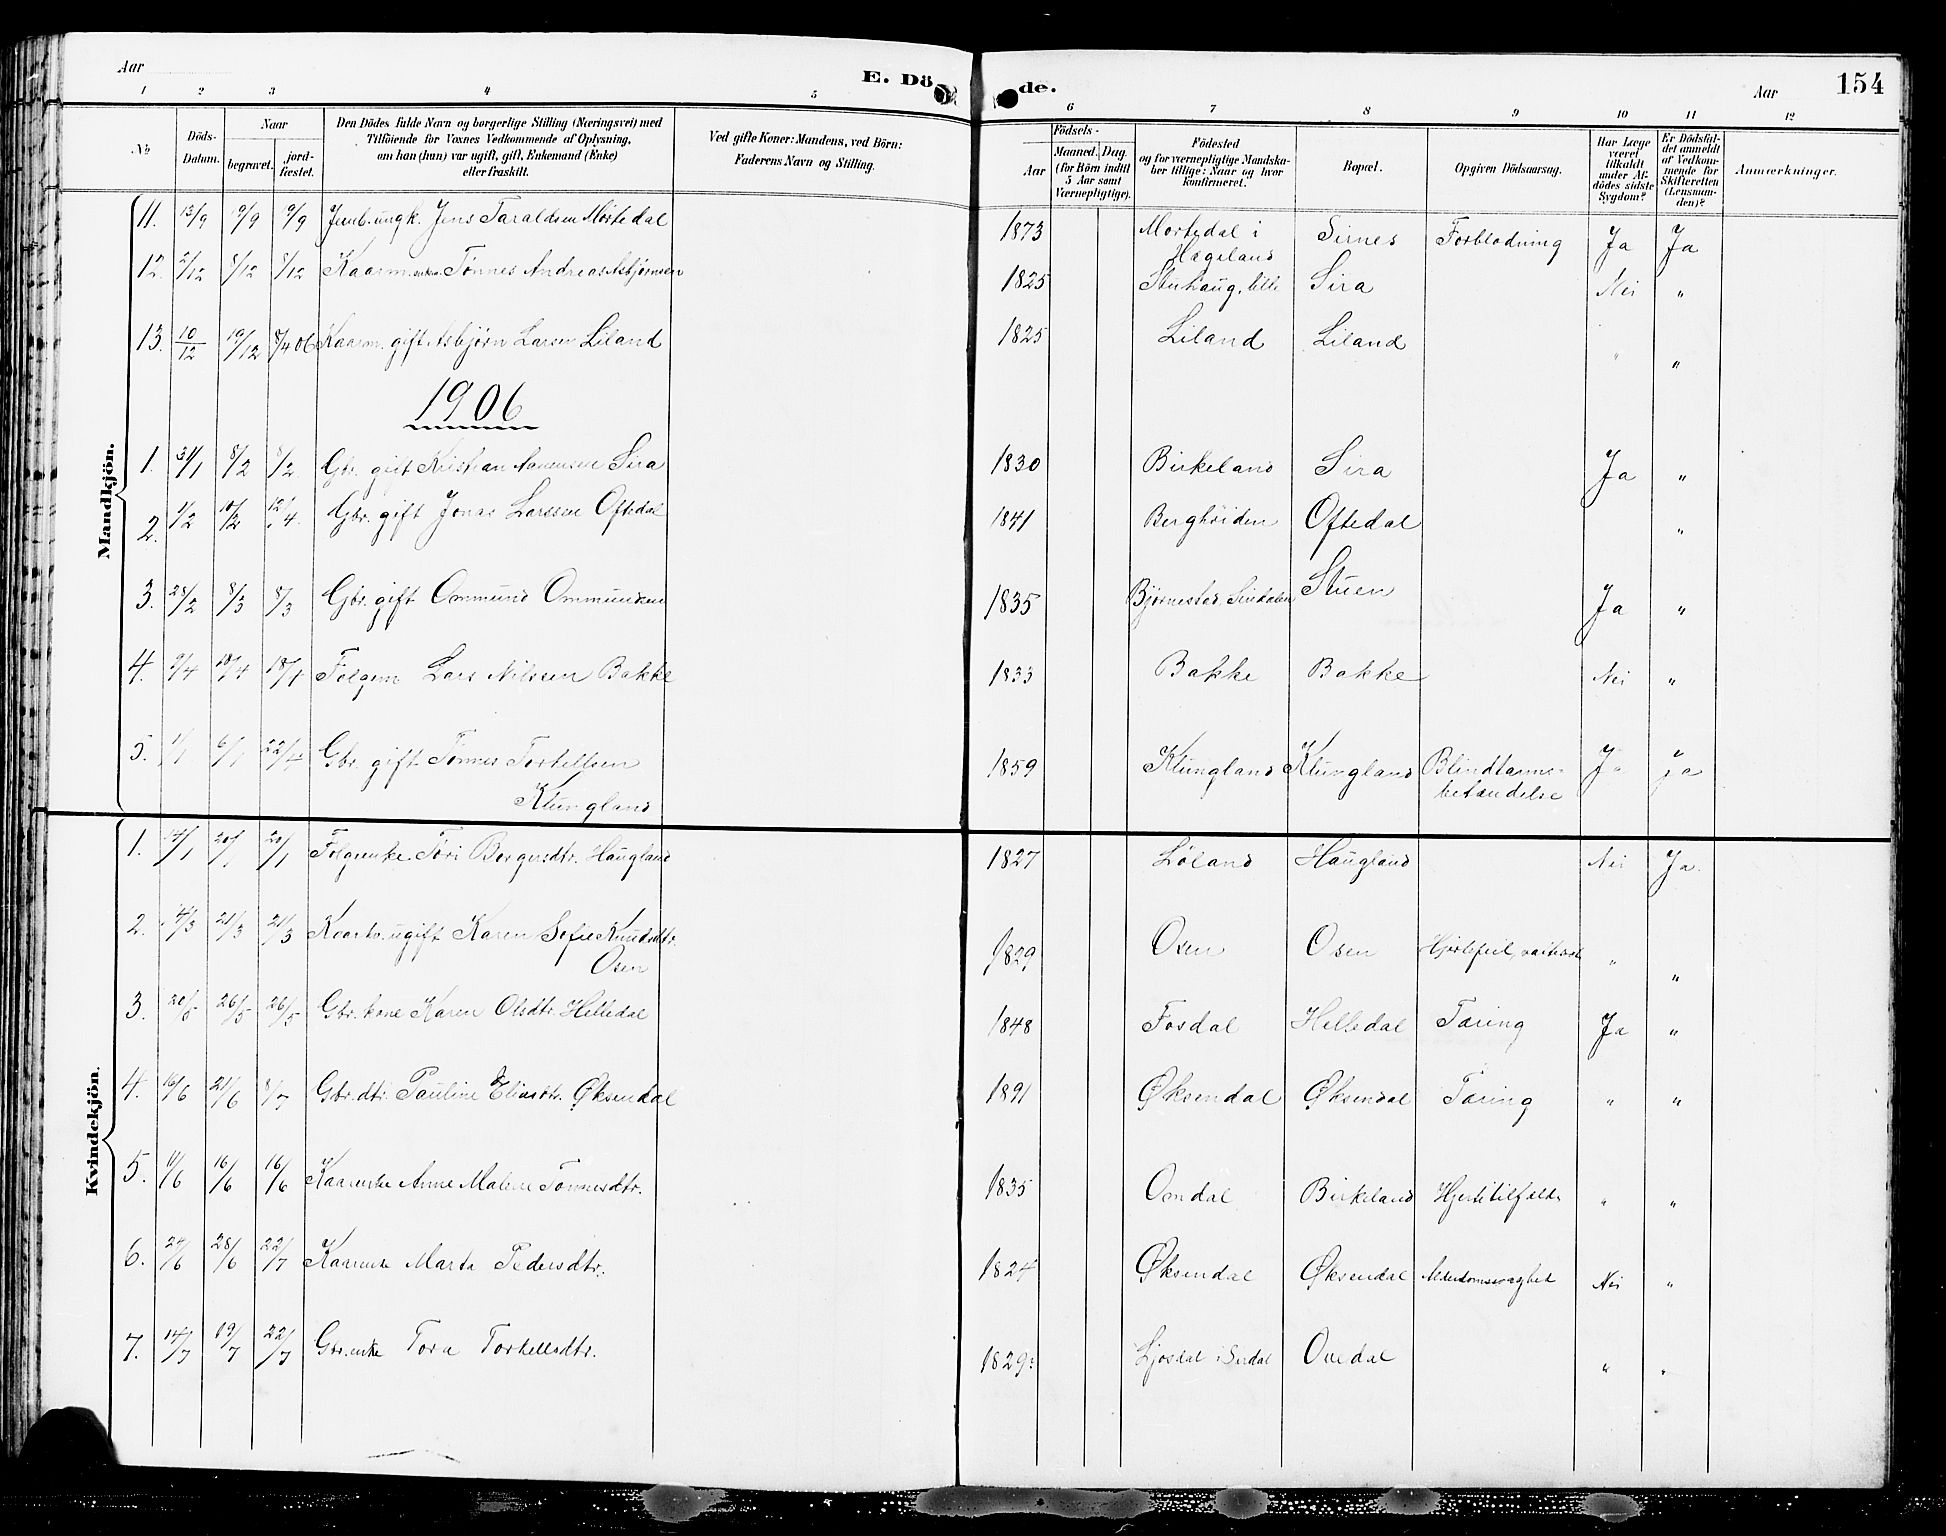 Aar
E. Dö
de.
Aar
154
1 2 3 4 5 6 7 8 9 10 11 12
No
Döds-
Datum.
Naar
begravet.
jord-
fæstet.
Den Dödes fulde Navn og borgerlige Stilling (Næringsvei) med
Tilföiende for Voxnes Vedkommende af Oplysning,
om han (hun) var ugift, gift, Enkemand (Enke)
eller fraskilt.
Ved gifte Koner: Mandens, ved Börn:
Faderens Navn og Stilling.
Födsels-
Aar
Maaned.
Dag.
(for Börn indtil
5 Aar samt
Værnepligtige).
Födested
og for værnepligtige Mandska-
ber tillige: Naar og hvor
konfirmeret.
Bopæl.
Opgiven Dödsaarsag.
Har Læge
været
tilkaldt
under Af-
dödes sidste
Sygdom?
Er Dödsfal-
det anmeldt
af Vedkom-
mende for
Skifteretten
(Lensman-
den)?
Anmærkninger.
Mandkjön.
11. 13/9 19/9 19/9 Jernb.ungk. Jens Taraldsen Mörtedal 1873 Mortedal i Sirnes Forblodning Ja Ja
Hægeland
12. 2/12 8/12 8/12 Kaarm. enkem. Tönnes Andreas Asbjörnsen 1825 Stuhaug, lille Sira Nei "
13. 10/12 19/12 8/4 06 Kaarm. gift Asbjörn Larsen Liland 1825 Liland Liland " "
1906
1. 31/1 8/2 8/2 Gbr. gift Kristian Sira 1830 Birkeland Sira Ja "
2. 1/2 10/2 12/4. Gbr. gift Jonas Larssen Oftedal 1841 Berghöiden Oftedal "
3. 28/2 8/3 8/3 Gbr. gift Ommund Ommundsen 1835 Björnestad, Sirdalen Stuen Ja "
4. 9/4 18/4 18/4 Folgem Lars Nilssen Bakke 1833 Bakke Bakke Nei "
5. 1/1 6/1 22/4 Gbr. gift Tönnes Torkellsen 1859 Klungland Klungland Blindtarms- Ja Ja
Klungland betændelse
Kvindekjön.
1. 14/1 20/1 20/1 Folgeenke Töri Borgersdtr. Haugland 1827 Löland Haugland Nei Ja.
2. 14/3 21/3 21/3 Kaark. ugift Karen Sofie Knudsdtr. 1829 Osen Osen Hjertefeil, " "
Osen
3. 20/5 26/5 26/5 Gbr. kone Karen Olsdtr. Helledal 1848 Fosdal Helledal Tæring Ja "
4. 16/6 21/6 8/7 Gbr. dtr. Pauline Eliasdtr. Øksendal 1891 Øksendal Øksendal Tæring " "
5. 11/6 16/6 16/6 Kaarenke Anne Malene Tönnesdtr. 1835 Omdal Birkeland Hjertetilfælde " "
6. 24/6 28/6 22/7 Kaarenke Marta Pedersdtr. 1824 Øksendal Øksendal Alderdomssvaghed Nei "
7. 14/7 19/7 22/7 Gbr. enke Tora Torkellsdtr. 1829: Ljosdal i Sirdal Ovedal " "